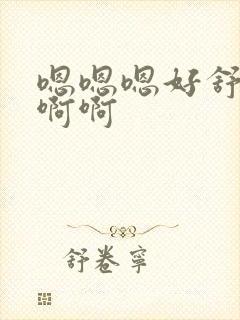 嗯嗯嗯好舒
啊啊
舒卷寧